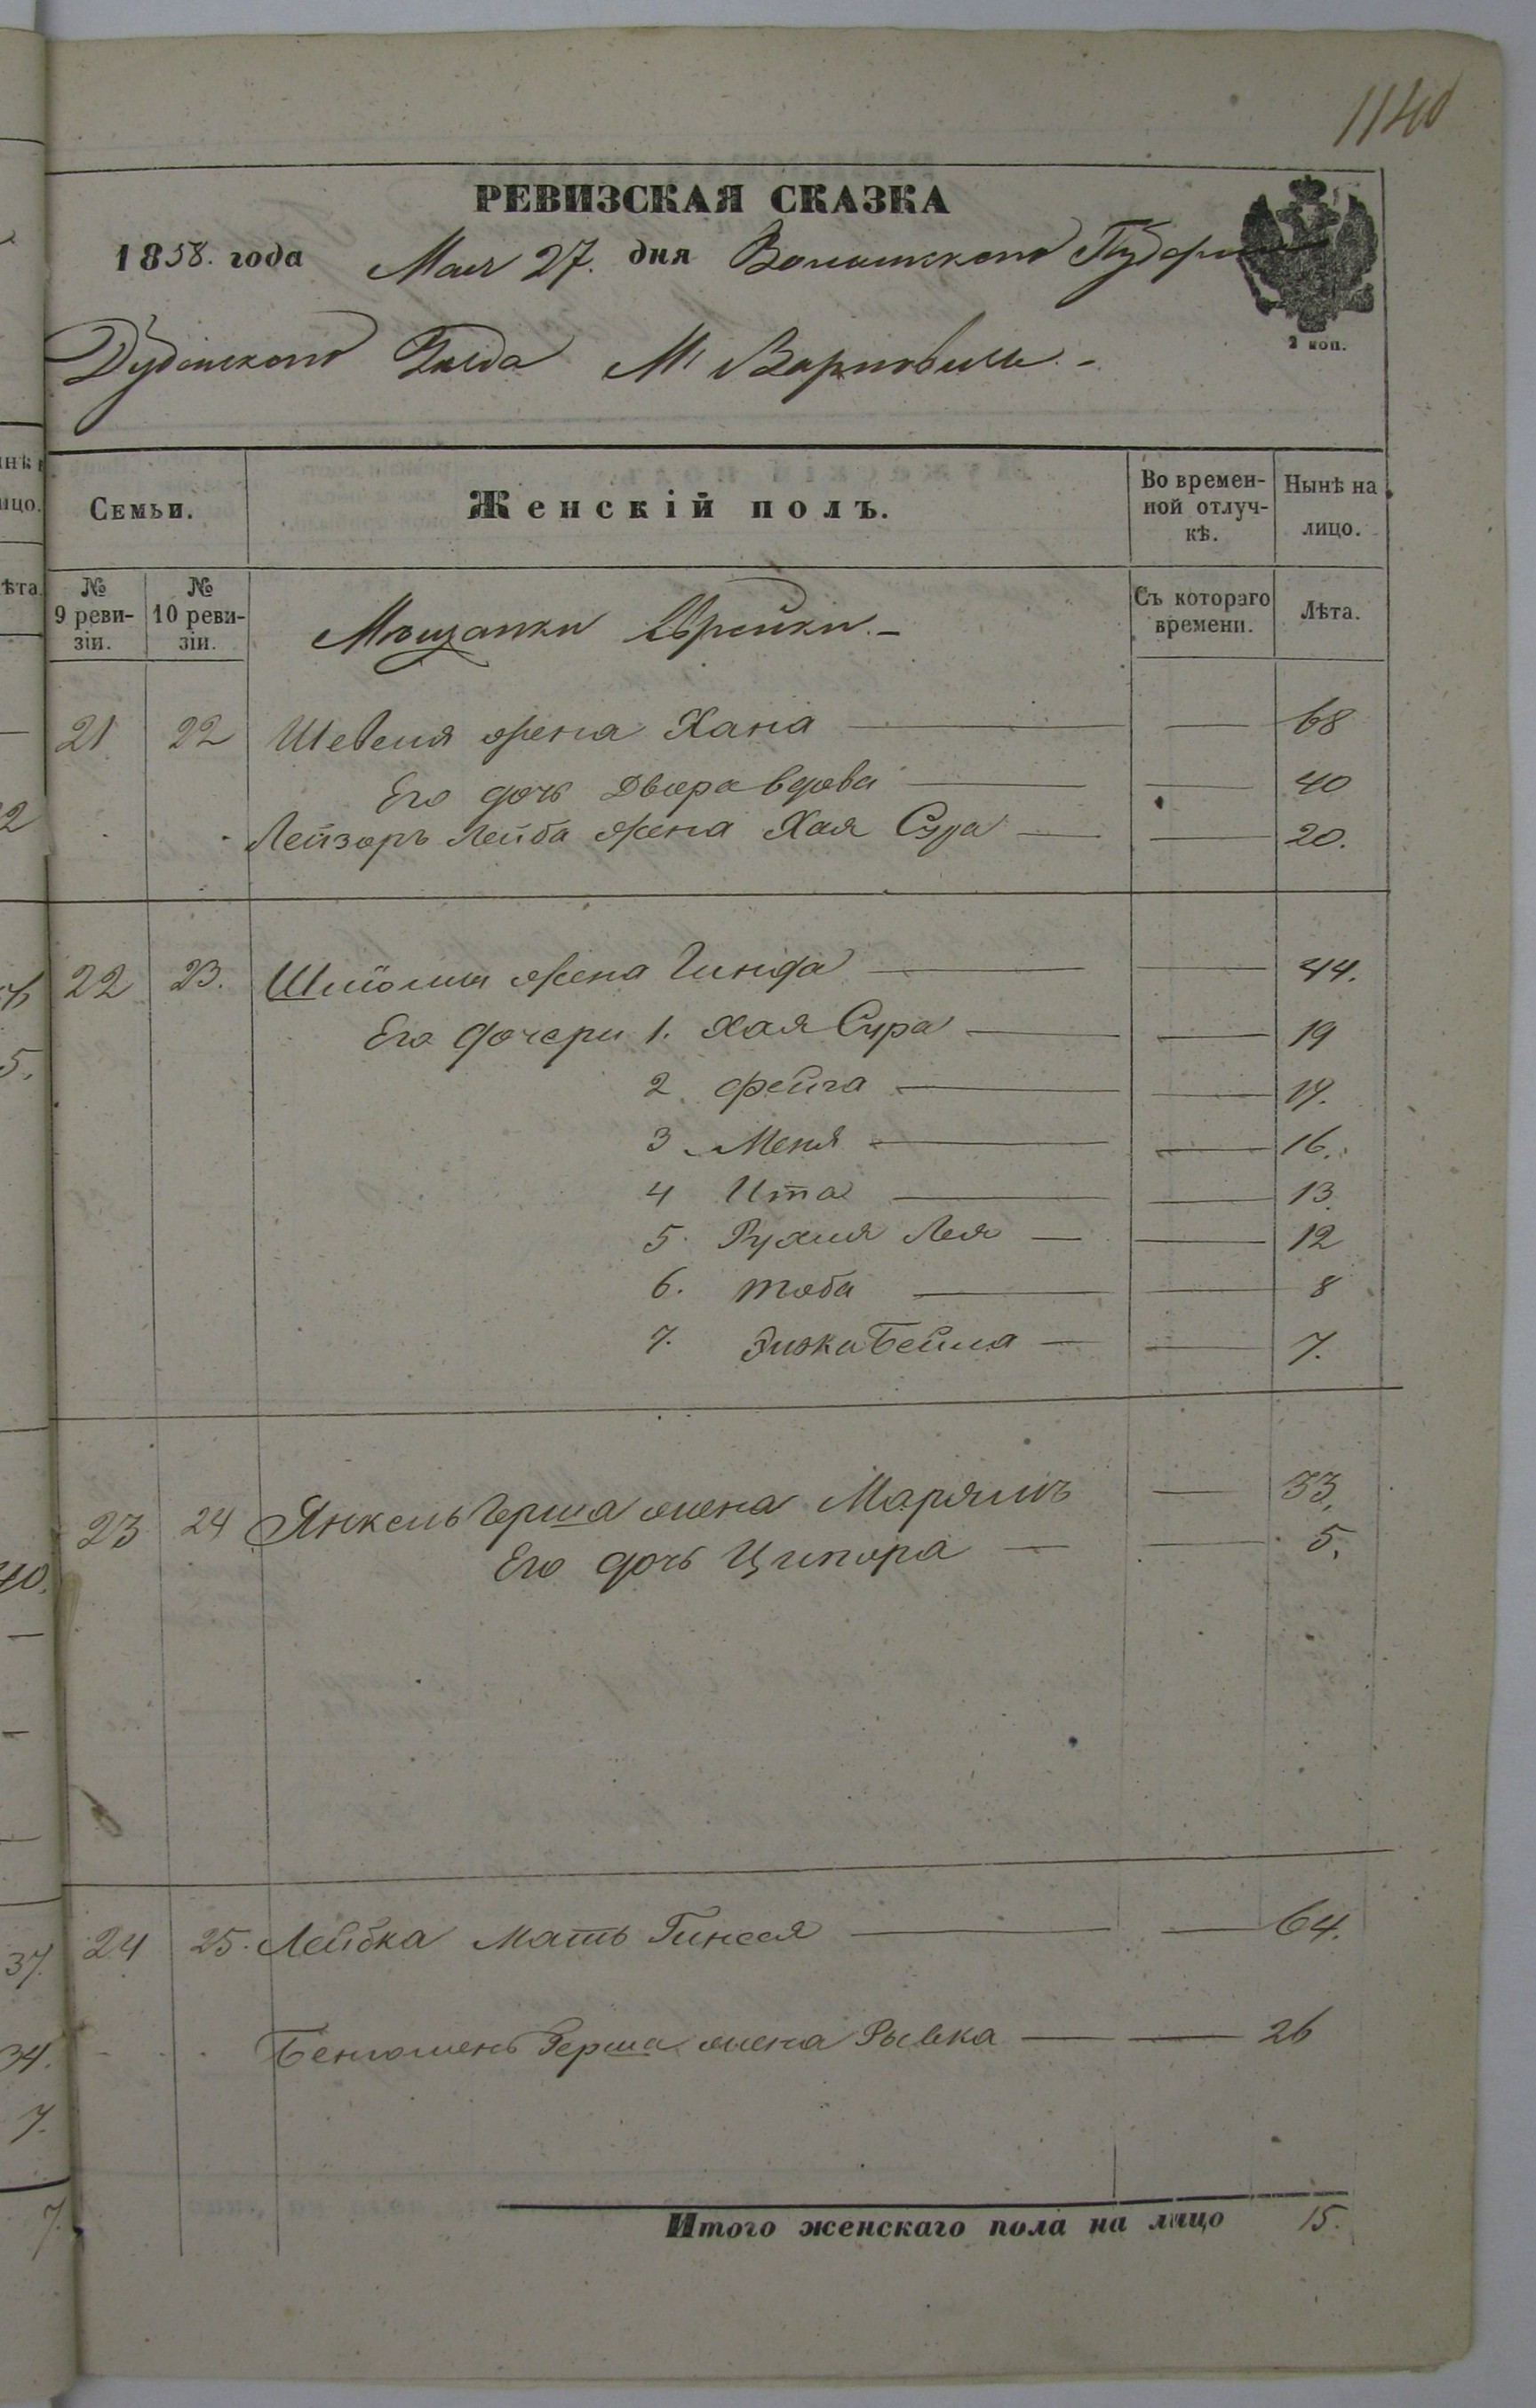 1140
РЕВИЗСКАЯ СКАЗКА
1858. года Мая 27. дня Волынской Губерніи
2 коп.
Дубенского Уезда М. Варковичь. -
Семьи. Женскій полъ. Во времен-ной отлуч-кѣ. Нынѣ на лицо.
№ 9 реви-зіи. № 10 реви-зіи. Мѣщанки Еврейки. - Съ котораго времени. Лѣта.
21 22 Шевеля жена Хана — — 68
Его дочь Двора вдова — — 40
Лейзоръ Лейба жена Хая Сура — — 20.
22 23. Шліомы жена Гинда — — 44.
Его дочери 1. Хая Сура — — 19
2 Фейга — — 17.
3 Меня — — 16.
4 Ита — — 13.
5. Рухля Лея — — 12
6. Тоба — — 8
7. Бейла — — 7.
23 24 Янкель Герша жена Марямъ — 33.
Его дочь Ципора — — 5.
24 25. Лейбка мать Гинеся — — 64.
Беньюмень Герша жена Рывка — — 26
Итого женскаго пола на лицо 15.